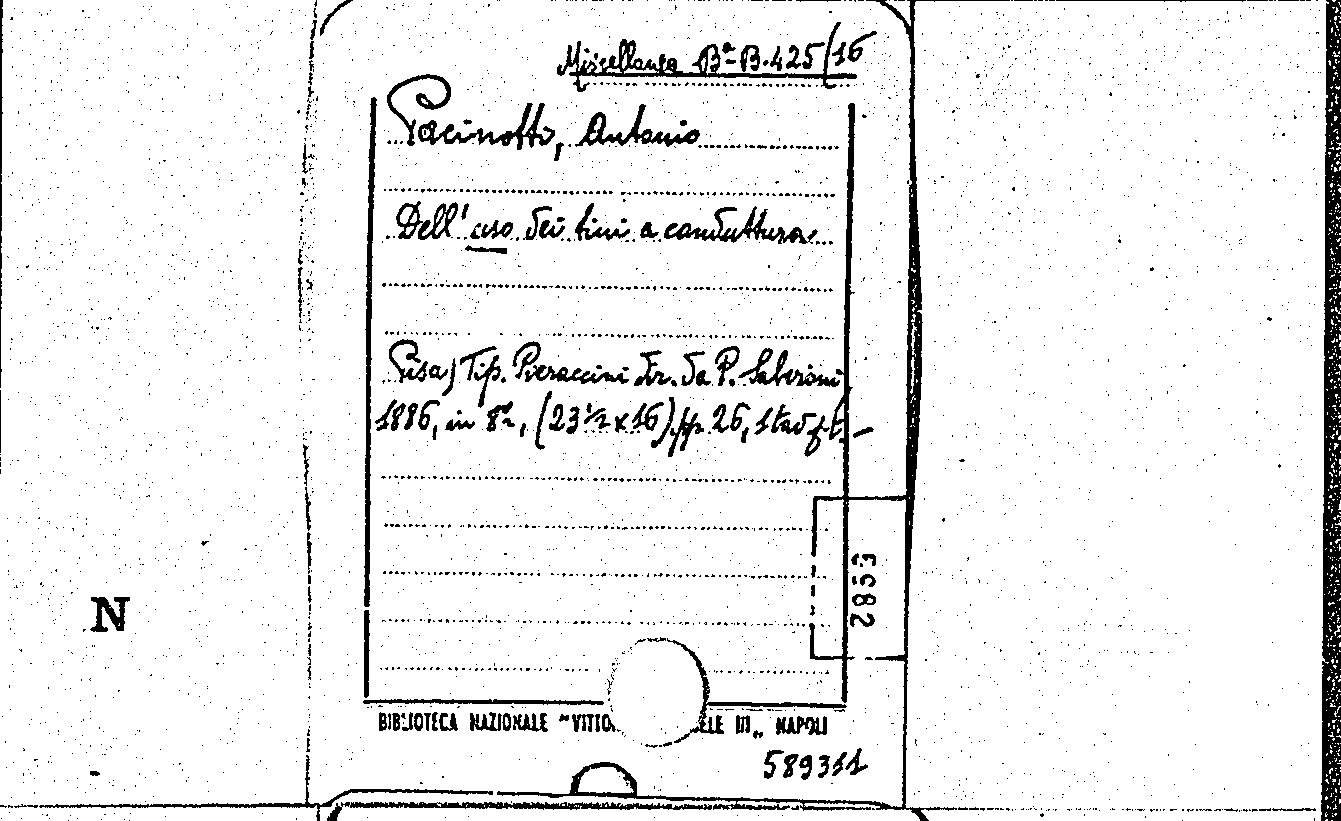 Miscellanea Bª-B.425/16
Pacinotti, Antonio
Dell'uso dei tini a conduttura
Pisa, Tip. Pieraccini dir. da P. Salvioni
1886, in 8º, (23½ x 16) pp. 26, 1 tav. f. t. –
N
BIBLIOTECA NAZIONALE "VITTO ELE III" NAPOLI
589311